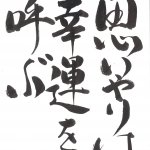 思いやりは
幸運を
呼ぶ